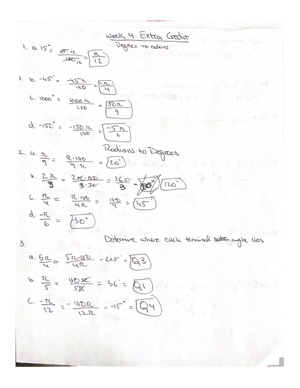 Week 4 Extra Credit
Degrees to radians
1. a. 15° = 15π/180 = π/12
1. b. -45° = -45π/180 = -π/4
c. 1000° = 1000π/180 = 50π/9
d. -150° = -150π/180 = -5π/6
Radians to Degrees
2. a. π/9 = π·180/9π = 20°
b. 2π/9 = 360/9 = 120°
c. π/4 = π·180/4π = 180/4 = 45°
d. -π/6 = 30°
3. Determine where each terminal angle lies
a. 5π/4 = 5π·180/4π = 225° = Q3
b. π/5 = 180π/5π = 36° = Q1
c. -π/12 = -180π/12π = -15° = Q4